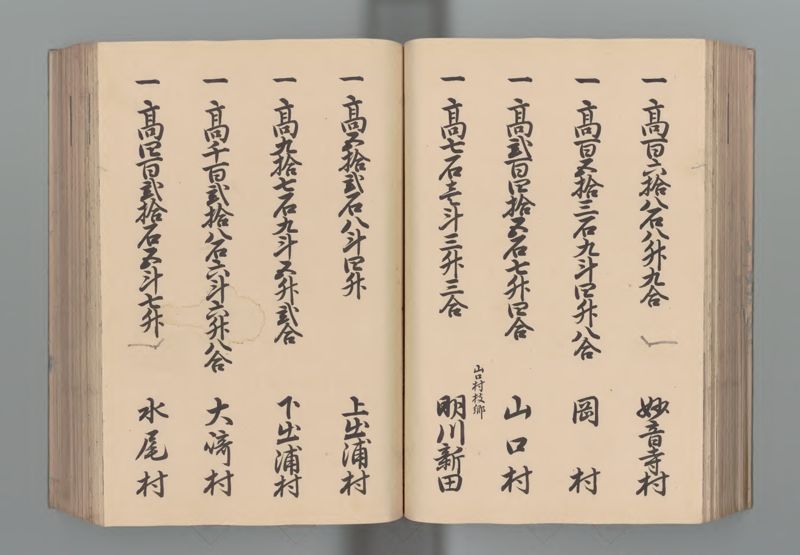 一 高百六拾八石八升九合 妙音寺村
一 高百五拾三石九斗四升八合 岡村
一 高弐百四拾五石七升四合 山口村
山口村枝郷
一 高七石壱斗三升三合 明川新田
一 高五拾弐石八斗四升 上出浦村
一 高九拾七石九斗五升弐合 下出浦村
一 高千百弐拾八石六斗六升八合 大崎村
一 高四百弐拾石五斗七升 水尾村